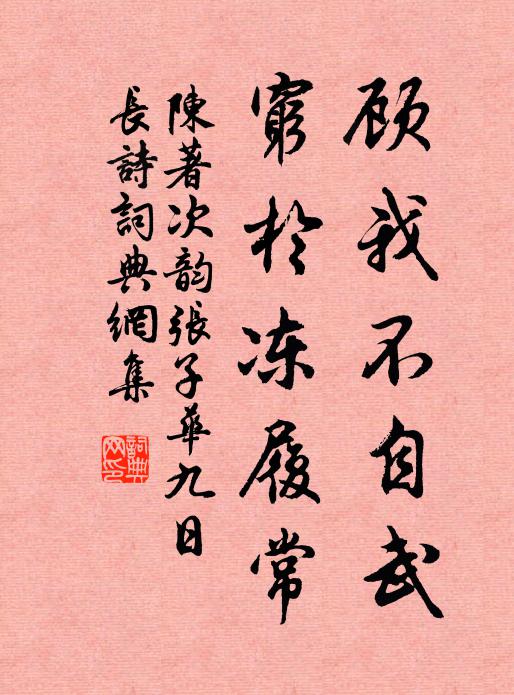 顾我不自武
穷於冻履常
陳著次韵張子華九日
長詩詞典網集
詞典网印